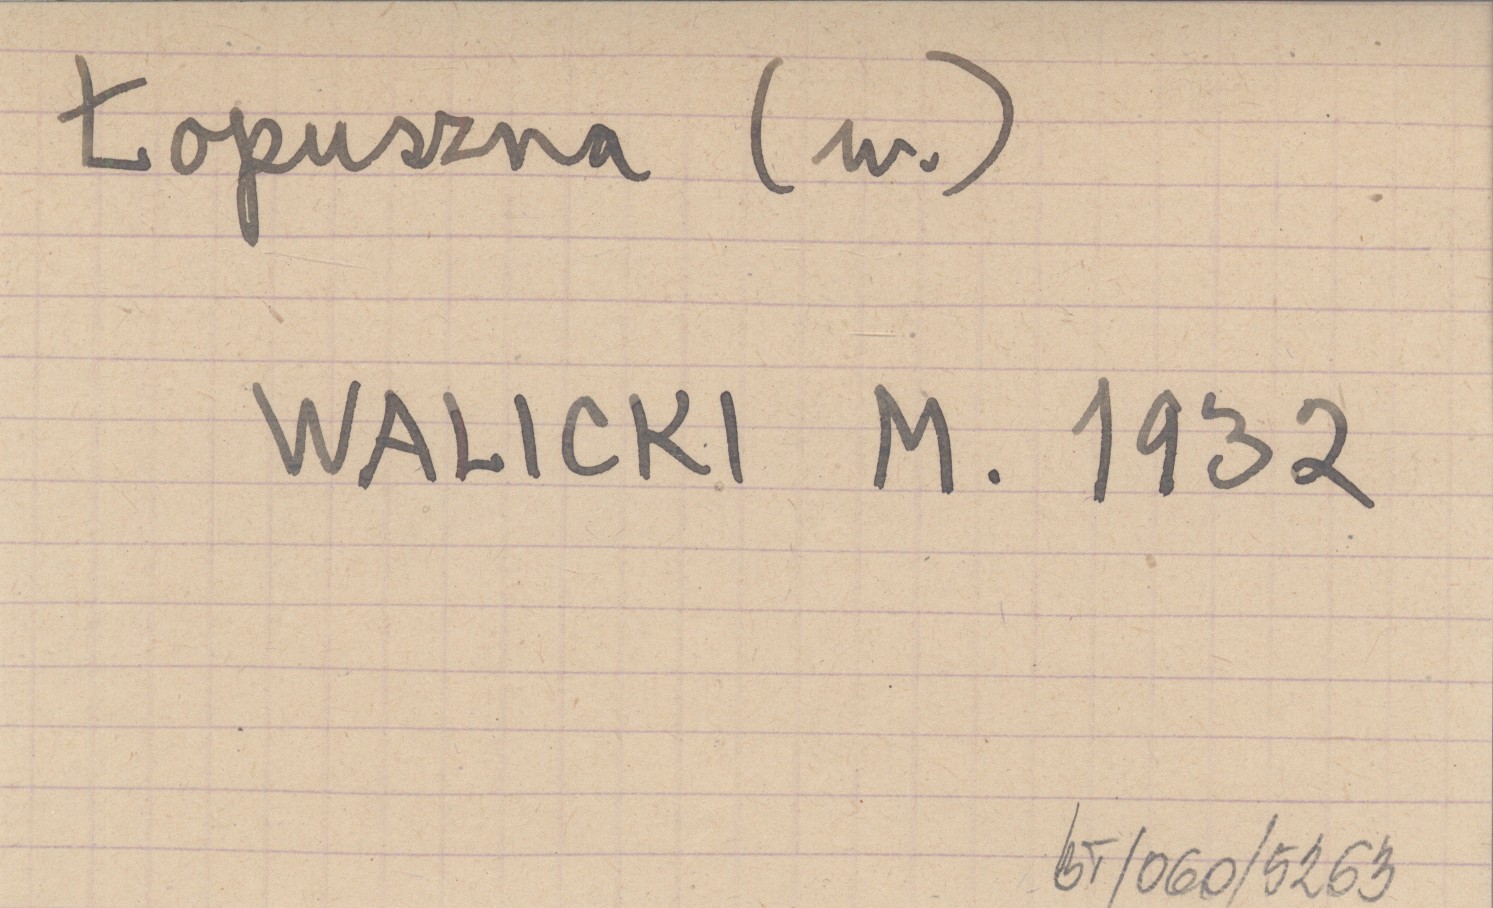 Łopuszna (w.)
WALICKI M. 1932
bT/060/5263